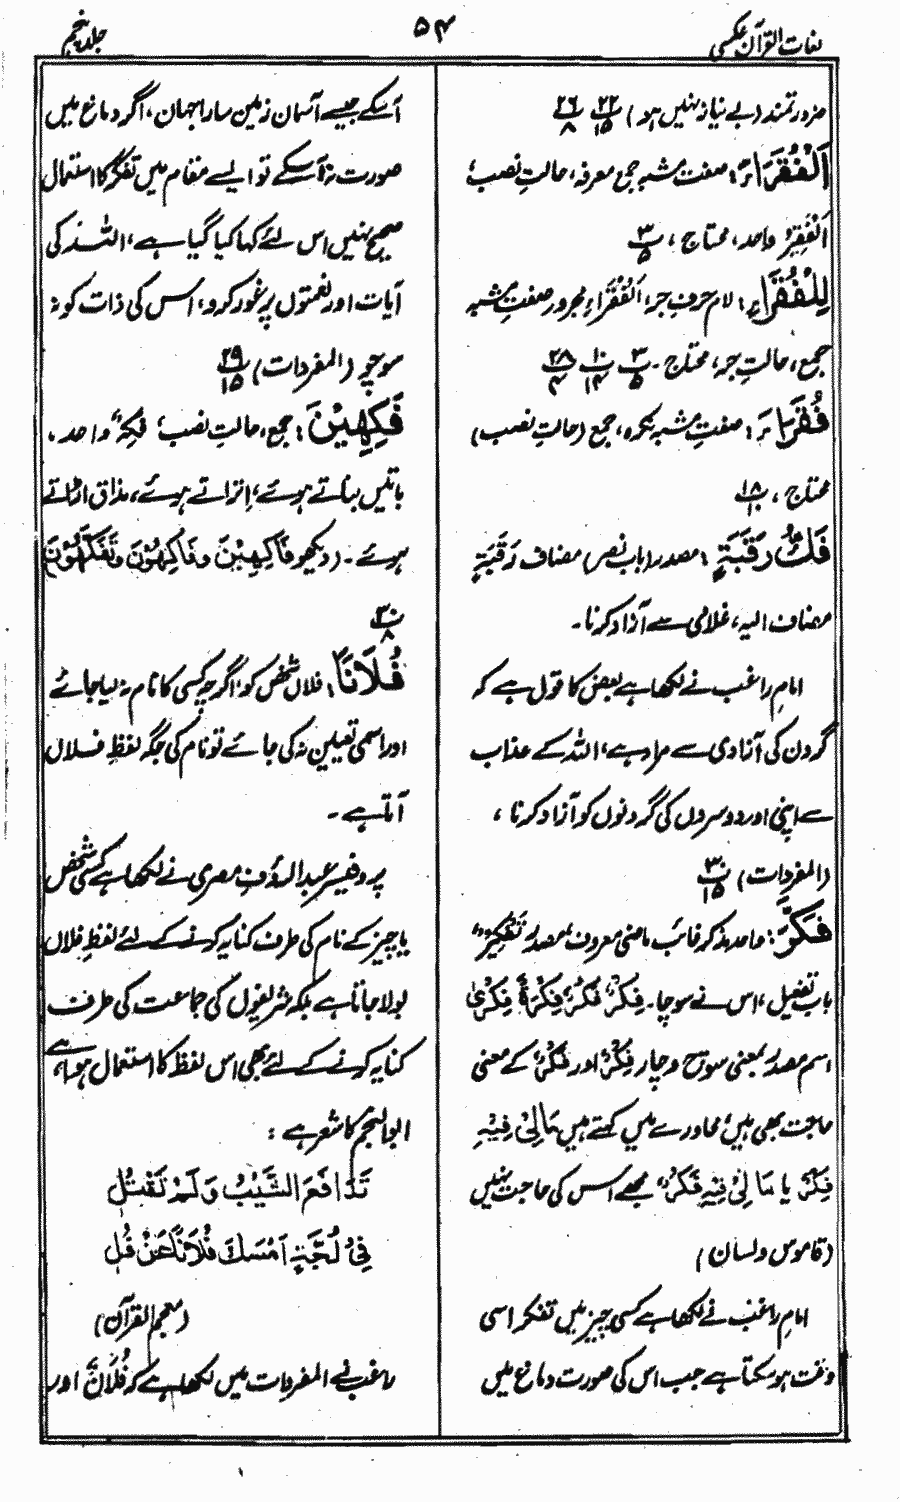 لغات القرآن عکسی
۵۴
جلد پنجم
ضرورتمند (بے نیاز نہیں ہو) ۲۲/۱۵ ۲۶/۸
اَلْفُقَرَاءَ: صفت مشبہ جمع معرفہ، حالتِ نصب،
اَلْفَقِیْرُ واحد، محتاج ، پ ۳/۵
لِلْفُقَرَاءِ: لام حرف جر، اَلْفُقَرَاءِ مجرور صفتِ مشبہ
جمع، حالتِ جر، محتاج ۔ پ ۳/۵ ۱۰/۱۴ ۲۸/۴
فُقَرَاءَ: صفتِ مشبہ نکرہ، جمع (حالتِ نصب)
محتاج ، ۱۸/۱۰
فَكُّ رَقَبَةٍ: مصدر (باب نصر) مضاف رَقَبَةٍ
مضاف الیہ، غلامی سے آزاد کرنا ۔
امام راغب نے لکھا ہے بعض کا قول ہے کہ
گردن کی آزادی سے مراد ہے، اللہ کے عذاب
سے اپنی اور دوسروں کی گردنوں کو آزاد کرنا ،
(المفردات) ۳۰/۱۵
فَكَّرَ: واحد مذکر غائب ماضی معروف، مصدر تَفْکِیْرٌ،
باب تفعیل، اس نے سوچا۔ فِکْرٌ، فَکْرٌ، فِکْرَةٌ، فِکْرٰی
اسم مصدر بمعنی سوچ و چار فِکْرٌ اور فَکْرٌ، کے معنی
حاجت بھی ہیں، محاورے میں کہتے ہیں مَالِیْ فِیْہِ
فِکْرٌ یا مَا لِیْ فِیْہِ فَکْرٌ، مجھے اس کی حاجت نہیں
(قاموس و لسان)
امام راغب نے لکھا ہے کسی چیز میں تفکر اسی
وقت ہو سکتا ہے جب اس کی صورت دماغ میں
آسکے جیسے آسمان زمین سارا جہان، اگر دماغ میں
صورت نہ آسکے تو ایسے مقام میں تفکر کا استعمال
صحیح نہیں اس لئے کہا گیا ہے، اللہ کی
آیات اور نعمتوں پر غور کرو، اس کی ذات کو نہ
سوچو (المفردات) ۲۹/۱۵
فَكِهِيْنَ: جمع، حالتِ نصب، فَکِہٌ، واحد ،
باتیں بناتے ہوئے، اتراتے ہوئے، مذاق اڑاتے
ہوئے ۔ (دیکھو فَاکِہِیْنَ و فَاکِہُوْنَ و تَفَکَّہُوْنَ)
۳۰/۸
فُلَانًا: فلاں شخص کو، اگرچہ کسی کا نام نہ لیا جائے
اور اسمی تعیین نہ کی جائے تو نام کی جگہ لفظِ فلاں
آتا ہے ۔
پروفیسر عبدالرؤف مصری نے لکھا ہے کسی شخص
یا چیز کے نام کی طرف کنایہ کرنے کے لئے لفظِ فلاں
بولا جاتا ہے بلکہ شریفوں کی جماعت کی طرف
کنایہ کرنے کے لئے بھی اس لفظ کا استعمال ہوتا ہے،
ابوالنجم کا شعر ہے :
تَدَافَعَ الشَّيْبُ وَلَمْ تَقْتُلِ
فِیْ لُجَّةٍ اَمْسَكَ فُلَانًا عَنْ فُلِ
(معجم القرآن)
راغب نے المفردات میں لکھا ہے کہ فُلَانٌ اور